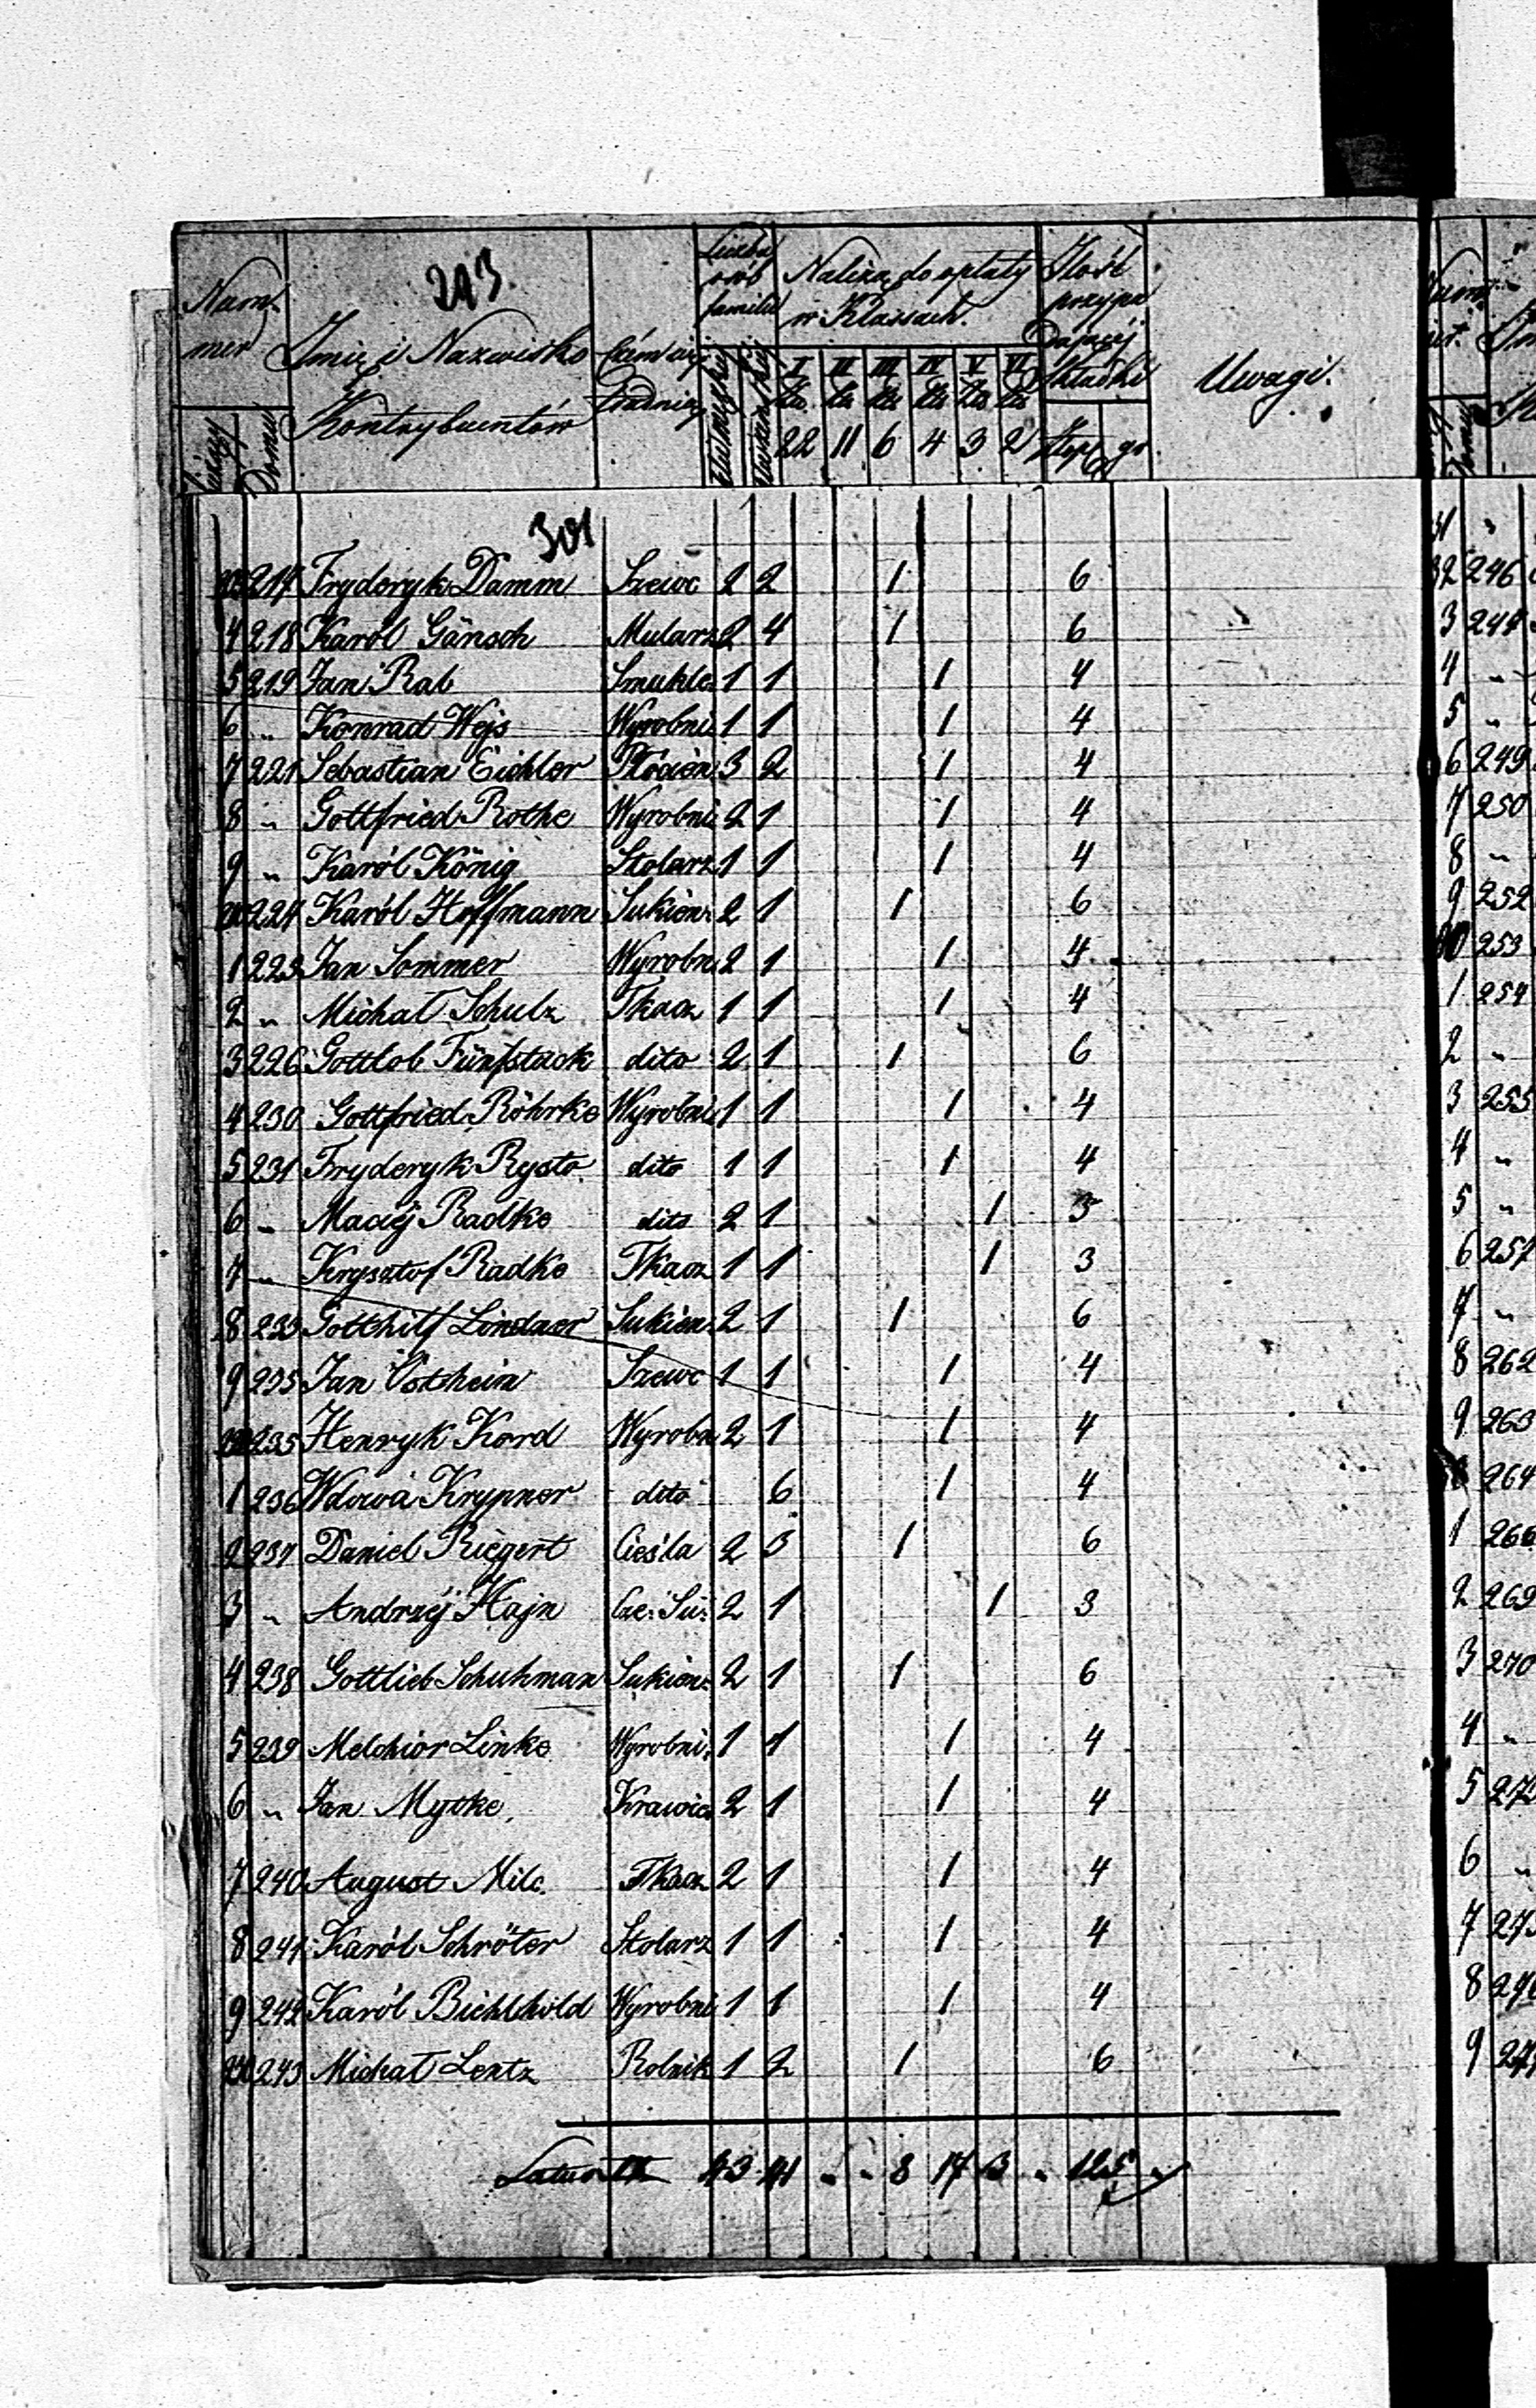 293.
Num-
mer
Imię i Nazwisko
Kontrybuentów
Czém się
trudnią
Liczba
osób
familii
Należą do opłaty
w Klassach.
I II III IV V VI
22 11 6 4 3 2
Ilość
przypa
dającéj
składki
Złp gr
Uwagi.
bieżący
Domu
301
217 Fryderyk Damm Szewc 2 2 1 6
4 218 Karól Gänsch Mularz 2 4 1 6
5 219 Jan Rab Smukle. 1 1 1 4
6 " Konrad Wejs Wyrobni. 1 1 1 4
7 221 Sebastian Eichler Płócien. 3 2 1 4
8 " Gottfried Rothe Wyrobni. 2 1 1 4
9 " Karól König Stolarz 1 1 1 4
224 Karól Hoffmann Sukien. 2 1 1 6
1 223 Jan Sommer Wyrobn. 2 1 1 4
2 " Michał Schulz Tkacz 1 1 1 4
3 226 Gottlob Fünfstück dito 2 1 1 6
4 230 Gottfried Röhrke Wyrobni. 1 1 1 4
5 231 Fryderyk Rysto dito 1 1 1 4
6 " Maciéj Radke dito 2 1 1 3
7 " Krysztof Radke Tkacz 1 1 1 3
8 233 Gotthilf Lindner Sukien. 2 1 1 6
9 235 Jan Ostheim Szewc 1 1 1 4
235 Henryk Kord Wyrobn 2 1 1 4
1 236 Wdowa Krypner dito 6 1 4
2 237 Daniel Riegert Cieśla 2 3 1 6
3 " Andrzéj Hajn Cze: Su: 2 1 1 3
4 238 Gottlieb Schuhman Sukien: 2 1 1 6
5 239 Melchior Linke Wyrobni: 1 1 1 4
6 " Jan Mytke, Krawiec 2 1 1 4
7 240 August Milc. Tkacz 2 1 1 4
8 241 Karól Schröter Stolarz 1 1 1 4
9 242 Karól Bichthold Wyrobni 1 1 1 4
243 Michał Lentz Rolnik 1 2 1 6
Latus 43 41 " " 8 17 3 " 125 "
31 "
32 246
3 247
4 "
5 "
6 249
7 250
8 "
9 252
253
1 254
2 "
3 255
4 "
5 "
6 257
7 "
8 262
9 263
264
1 266
2 269
3 270
4 "
5 272
6 "
7 273
8
9